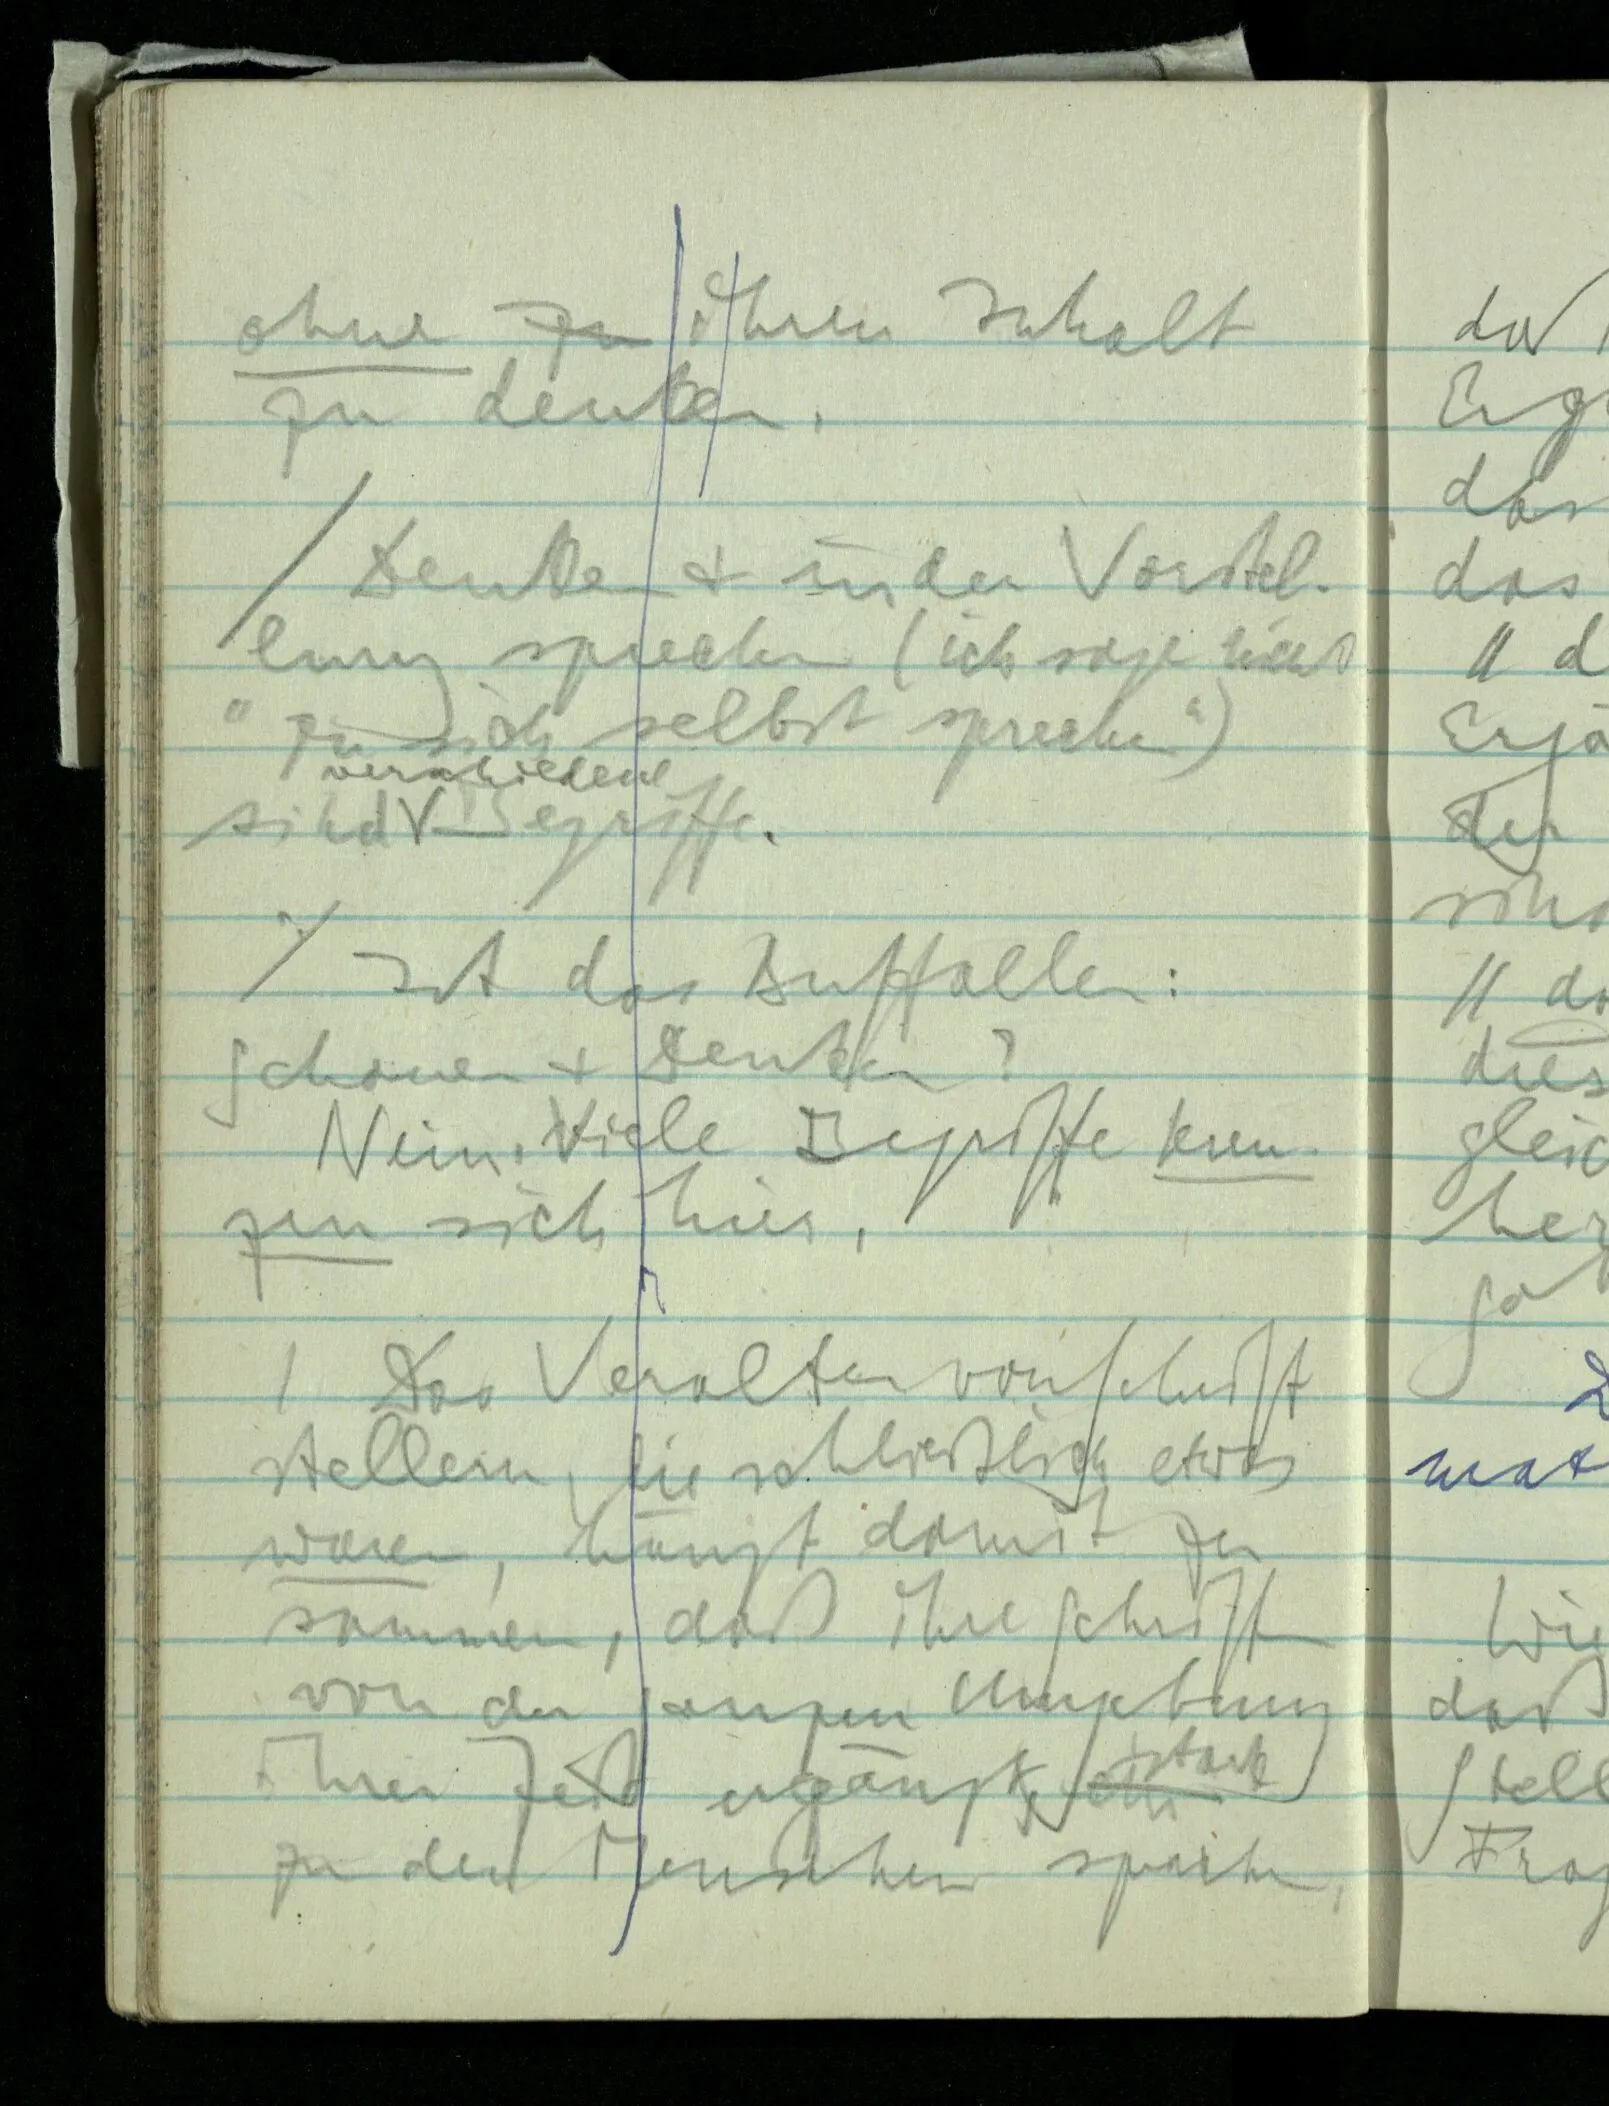 ohne zu ihren Inhalt
zu denken.
/ Denken & in der Vorstel-
lung sprechen (ich sage nicht
"zu sich selbst sprechen")
verschiedene
sind V Begriffe.
/ Ist das Auffallen:
Schauen & Denken?
Nein. Viele Begriffe kreu-
zen sich hier.
/ Das Veralten von Schrift
stellern, die schließlich etwas
waren, hängt damit zu
sammen, daß ihre Schriften
von der ganzen Umgebung
ihrer Zeit ergänzt, stark
zu den Menschen sprechen,
daß
Erg
das
das
// d
Ergä
der
sind
// da
dies
gleic
her
ga
mat
Wie
daß
Stell
Frag